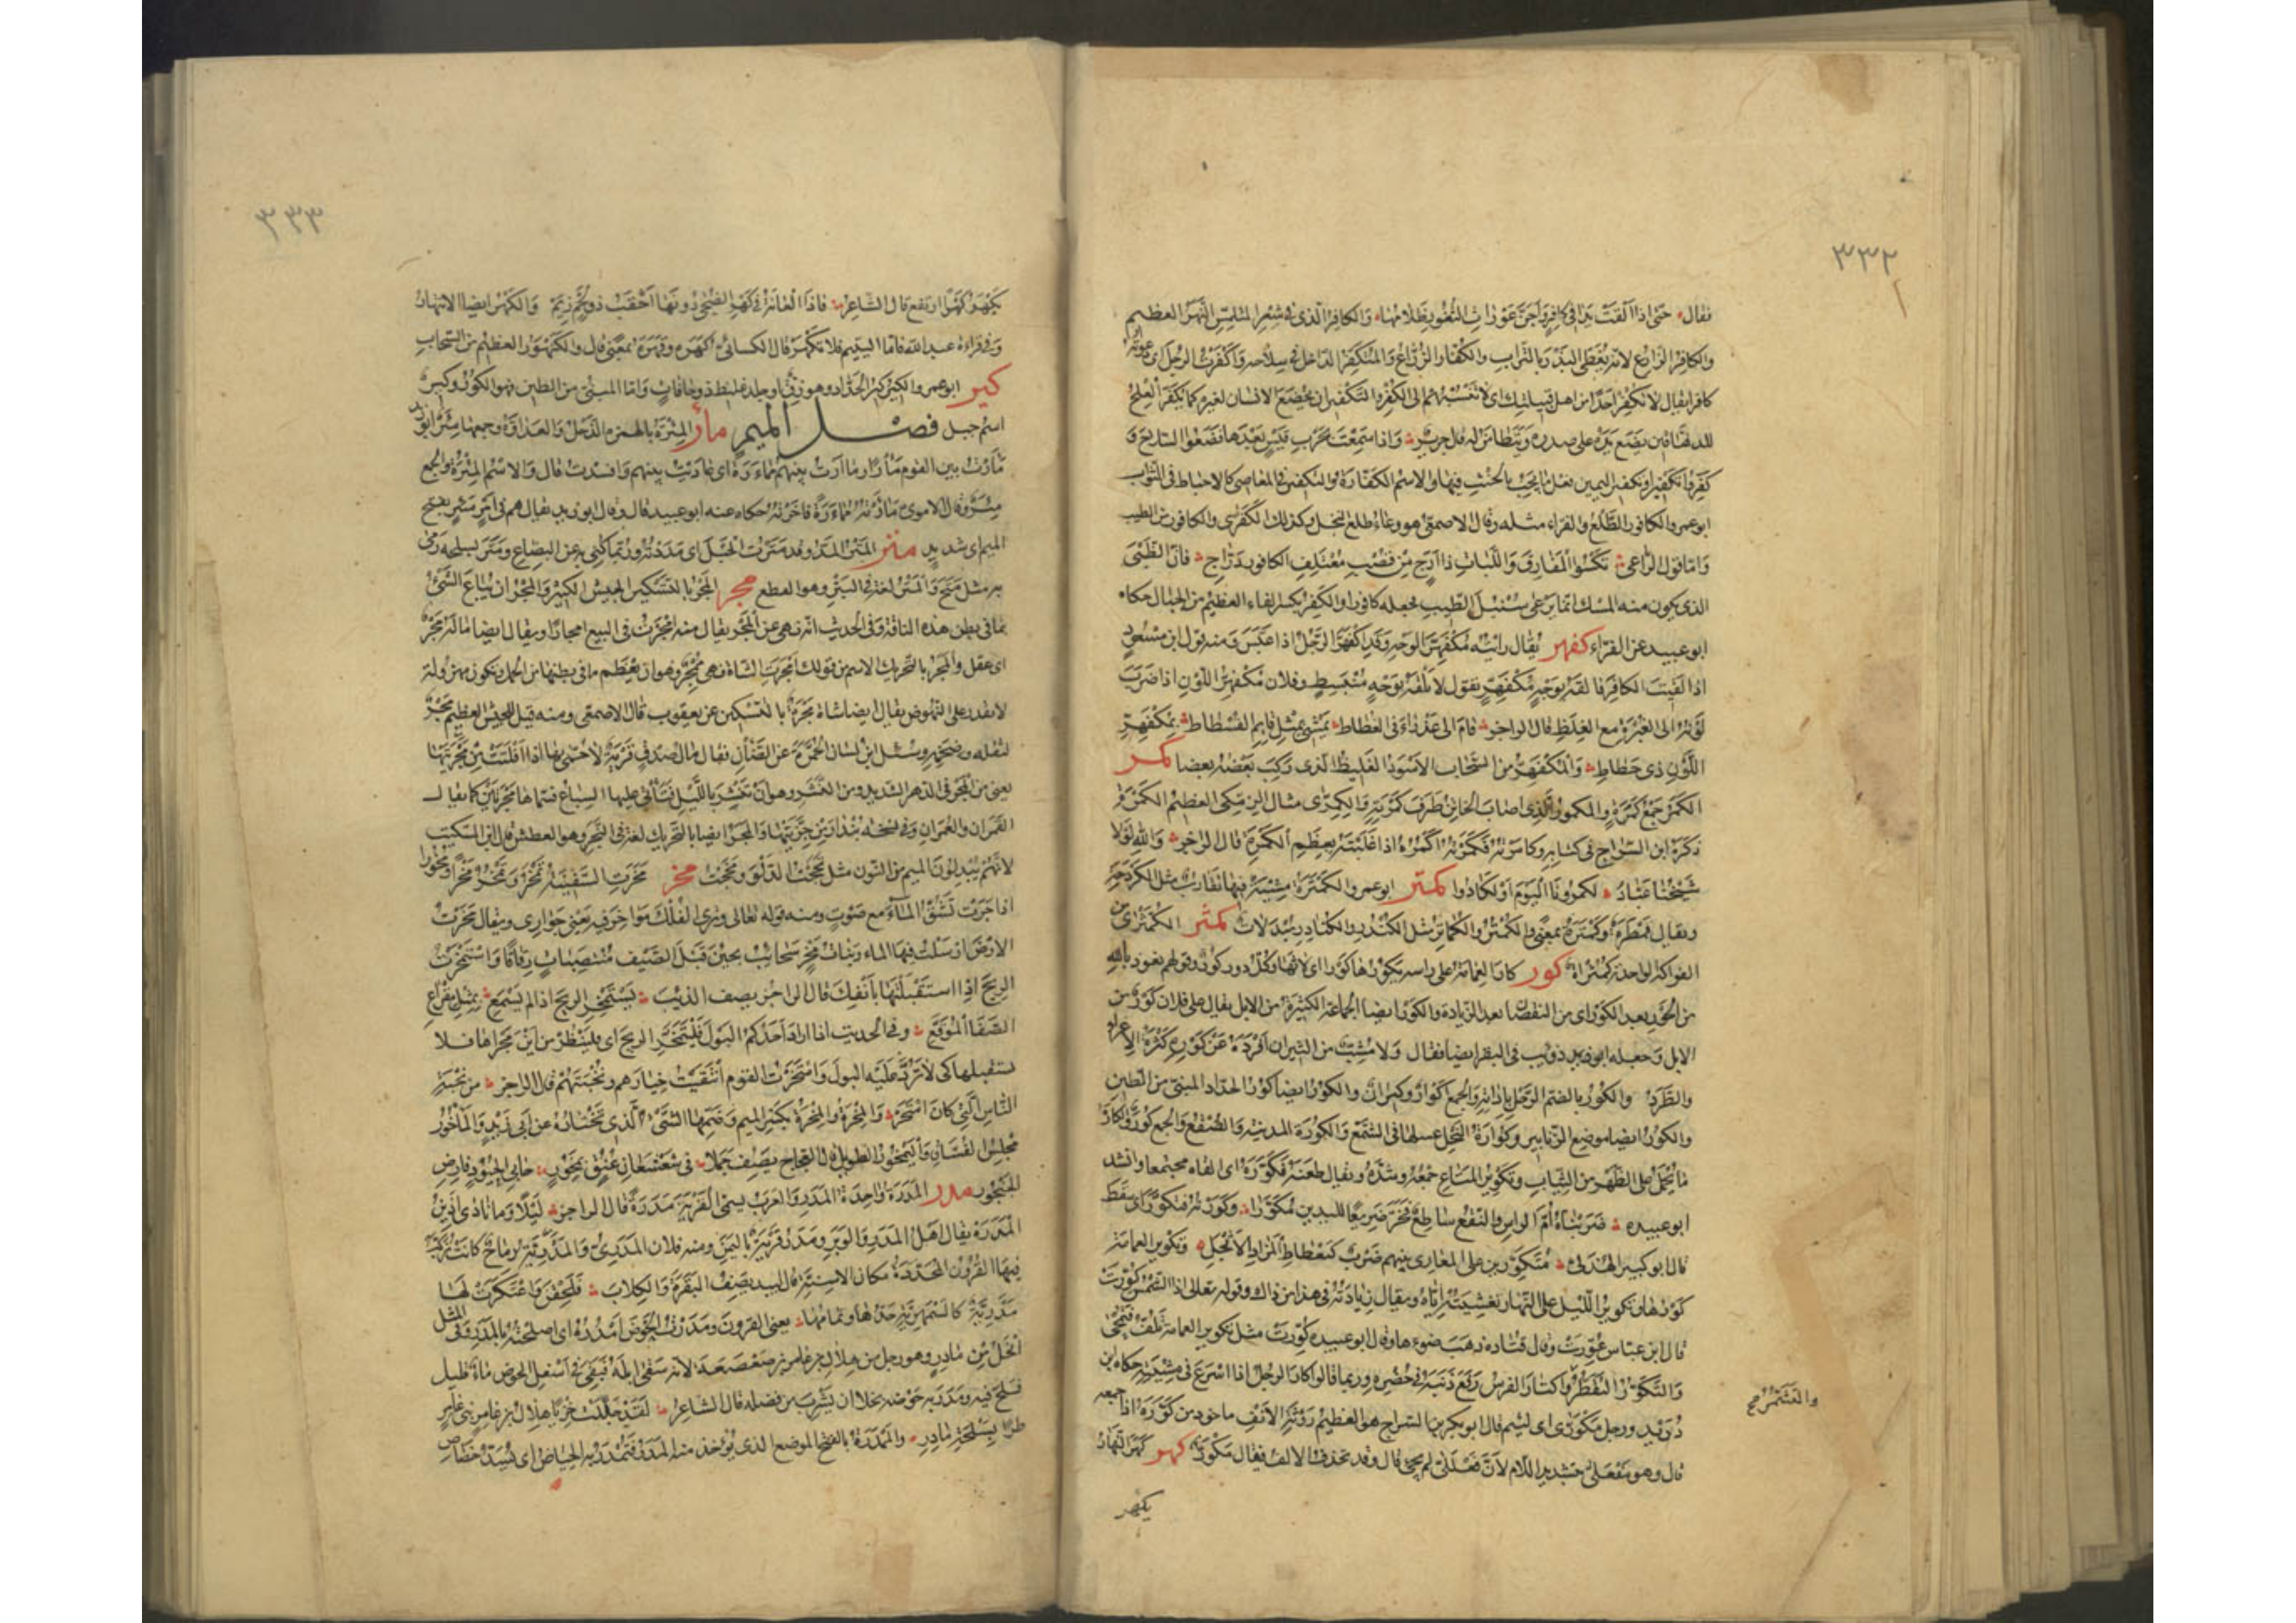 ٣٣٢
فقال حتى اذا القت يدا فى كافر واجن عورات الثغور ظلامها والكافر الذى فى شعر المتلمس النهر العظيم
والكافر الزارع لانه يغطى البذر بالتراب والكفار الزراع والمتكفر الداخل فى سلاحه واكفرت الرجل اى دعوته
كافرا يقال لا تكفر احدا من اهل قبلتك اى لا تنسبهم الى الكفر والتكفير ان يخضع الانسان لغيره كما يكفر العلج
للدهاقين يضع يده على صدره ويتطامن له قال جرير واذا سمعت بحرب قيس بعدها فضعوا السلاح و
كفروا تكفيرا وتكفير اليمين فعل ما يجب بالحنث فيها والاسم الكفارة والتكفير فى المعاصى كالاحباط فى الثواب
ابو عمرو الكافور الطلع والفراء مثله وقال الاصمعى هو وعاء طلع النخل وكذلك الكفرى والكافور من الطيب
واما قول الراعى تكسوا المفارق واللبات ذا ارج من قصب معتلف الكافور دراج فان الظبى
الذى يكون منه المسك انما يرعى سنبل الطيب فجعله كافورا والكفر بكسر الفاء العظيم من الجبال حكاه
ابو عبيد عن الفراء كفهر يقال رايته مكفهر الوجه وقد اكفهر الرجل اذا عبس ومنه قول ابن مسعود
اذا لقيت الكافر فالقه بوجه مكفهر يقول لا تلقه بوجه منبسط وفلان مكفهر اللون اذا ضرب
لونه الى الغبرة مع الغلظ قال الراجز قام الى عذراء فى الغطاط يمشى بمثل قايم الفسطاط بمكفهر
اللون ذى حطاط والمكفهر من السحاب الاسود الغليظ الذى ركب بعضه بعضا كمر
الكمر جمع كمرة والمكمور الذى اصاب الخاتن طرف كمرته والكمرى مثال الزمكى العظيم الكمرة و
ذكره ابن السراج فى كتابه وكامرته فكمرته اكمره اذا غلبته بعظم الكمرة قال الراجز والله لولا
شيخنا عباد لكمرونا اليوم او لكادوا كمتر ابو عمرو الكمترة مشية فيها تقارب مثل الكردحة
ويقال قمطره وكمتره بمعنى والكمتر والكماتر مثل الكندر والكنادر يبدلان كمثر الكمثرى من
الفواكه الواحدة كمثراة كور كار العمامة على راسه يكورها كورا اى لاثها وكل دور كور وقولهم نعوذ بالله
من الحور بعد الكور اى من النقصان بعد الزيادة والكور ايضا الجماعة الكثيرة من الابل يقال على فلان كور من
الابل وجعله ابو ذؤيب فى البقر ايضا فقال ولا مشب من الثيران افرده عن كوره كثرة الاغراء
والطرد والكور بالضم الرحل باداته والجمع اكوار وكيران والكور ايضا كور الحداد المبنى من الطين
والكور ايضا موضع الزنابير وكوارة النحل عسلها فى الشمع والكورة المدينة والصقع والجمع كور والكارة
ما يحمل على الظهر من الثياب وتكوير المتاع جمعه وشده ويقال طعنه فكوره اى القاه مجتمعا وانشد
ابو عبيده ضربناه ام الراس والنقع ساطع فخر صريعا لليدين مكورا وكورته فتكور اى سقط
قال ابو كبير الهذلى متكورين على المعارى بينهم ضرب كتعطاط المزاد الانجل وتكوير العمامة
كورها وتكوير الليل على النهار تغشيته اياه ويقال زيادته فى هذا من ذاك وقوله تعالى اذا الشمس كورت
قال ابن عباس غورت وقال قتاده ذهب ضوءها وقال ابو عبيده كورت مثل تكوير العمامة تلف فتمحى
والتكور التقطر واكتار الفرس رفع ذنبه فى حضره وربما قالوا كار الرجل اذا اسرع فى مشيته حكاه ابن
والتشمر صح
دريد ورجل مكورى اى لئيم قال ابو بكر بن السراج هو العظيم روثة الانف ماخوذ من كوره اذا جمعه
قال وهو مفعلى بتشديد اللام لان فعللى لم يجئ قال وقد تحذف الالف فيقال مكور كهر كهر النهار
يكهر
٣٣٣
يكهر كهرا ارتفع قال الشاعر فاذا العانة فى كهر الضحى دونها احقب ذو لحم زيم والكهر ايضا الانتهار
وفى قراءة عبد الله فاما اليتيم فلا تكهر قال الكسائى كهره وقهره بمعنى قال والكنهور العظيم من السحاب
كير ابو عمرو الكير كير الحداد وهو زق او جلد غليظ ذو حافات واما المبنى من الطين فهو الكور وكير
اسم جبل فصل الميم مأر المئرة بالهمزه الذحل والعداوة وجمعها مئر ابو زيد
مأرت بين القوم مأرا وماءرت بينهم مماءرة اى عاديت بينهم وافسدت قال والاسم المئرة والجمع
مئر وقال الاموى ماءرته مماءرة فاخرته حكاه عنه ابو عبيد قال وقال ابو زيد يقال هم فى امر مئر بفتح
الميم اى شديد متر المتر المد وقد مترت الحبل اى مددته وربما كنى به عن البضاع ومتر بسلحه رمى
به مثل متح والمتر لغة فى البتر وهو القطع مجر المجر بالتسكين الجيش الكثير والمجر ان يباع الشئ
بما فى بطن هذه الناقة وفى الحديث انه نهى عن المجر يقال منه امجرت فى البيع امجارا ويقال ايضا ماله مجر
اى عقل والمجر بالتحريك الاسم من قولك امجرت الشاة فهى ممجر وهو ان يعظم ما فى بطنها من الحمل وتكون مهزولة
لا تقدر على النهوض يقال ايضا شاة مجرة بالتسكين عن يعقوب قال الاصمعى ومنه قيل للجيش العظيم مجر
لثقله وضخمه وسئل ابن لسان الحمرة عن الضأن فقال مال صدق قرية لا حمى بها اذا افلتت من مجرتيها
يعنى من المجر فى الدهر الشديد ومن النشر وهو ان تنتشر بالليل فتأتى عليها السباع فسماها مجرتين كما يقال
القمران والعمران وفى نسخة بندار من حرتيها والمجر ايضا بالتحريك لغة فى النجر وهو العطش قال ابن السكيت
لانهم يبدلون الميم من النون مثل نخجت الدلو ومخجت مخر مخرت السفينة تمخر وتمخر مخرا ومخورا
اذا جرت تشق الماء مع صوت ومنه قوله تعالى وترى الفلك مواخر فيه يعنى جوارى ويقال مخرت
الارض ارسلت فيها الماء وبنات مخر سحائب يجئن قبل الصيف منتصبات رقاقا واستمخرت
الريح اذا استقبلتها بانفك قال الراجز يصف الذيب يستمخر الريح اذا لم يسمع بمثل مقراع
الصفا الموقع وفى الحديث اذا اراد احدكم البول فليتمخر الريح اى فلينظر من اين مجراها فلا
يستقبلها كى لا ترد عليه البول وامتخرت القوم انتقيت خيارهم ونخبتهم قال الراجز من نخبة
الناس التى كان امتخر والمخرة والمخرة بكسر الميم وضمها الشئ الذى تختاره عن ابى زيد والماخور
مجلس الفساق واليمخور الطويل قال العجاج يصف جملا فى شعشعان عنق يمخور حابى الحيود فارض
الحنجور مدر المدرة واحدة المدر والعرب يسمى القرية مدرة قال الراجز ليلا وما نادى اذين
المدرة يقال اهل المدر والوبر ومدر قرية باليمن ومنه فلان المدرى والمدرية رماح كانت تركب
فيها القرون المحددة مكان الاسنة قال لبيد يصف البقرة والكلاب فلحقن واعتكرت لها
مدرية كالسمهرية حدها وتمامها يعنى القرون ومدرت الحوض امدره اى اصلحته بالمدر وفى المثل
ابخل من مادر وهو رجل من هلال بن عامر بن صعصعة لانه سقى ابله فبقى فى اسفل الحوض ماء قليل
فسلح فيه ومدر به حوضه بخلا ان يشرب من فضله قال الشاعر لقد جللت خزيا هلال بن عامر بنى عامر
طرا بسلحة مادر والممدرة بالفتح الموضع الذى يؤخذ منه المدر فتمدر به الحياض اى يسد خصاص